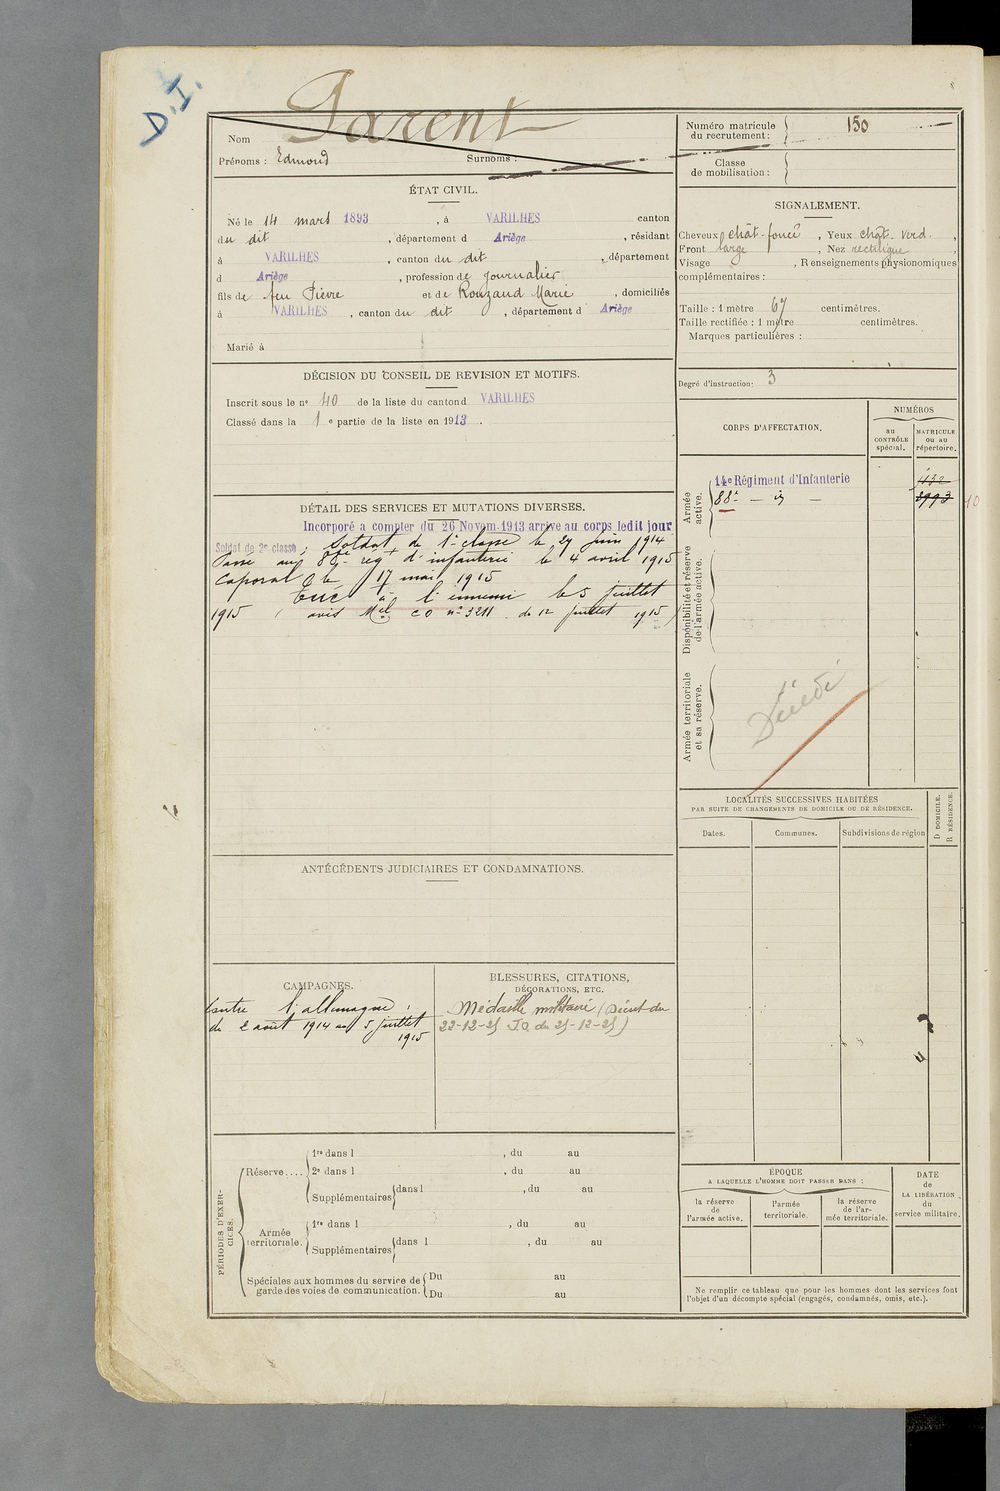 D.I.
Nom Parent
Prénoms : Edmond Surnoms :
Numéro matricule du recrutement : 150
Classe de mobilisation :
ÉTAT CIVIL.
Né le 14 mars 1893, à VARILHES canton
du dit, département d Ariège, résidant
à VARILHES, canton du dit, département
d Ariège, profession de journalier
fils de feu Pierre et de Rouzaud Marie, domiciliés
à VARILHES, canton du dit, département d Ariège
Marié à
SIGNALEMENT.
Cheveux chât-foncé, Yeux chât-verd.,
Front large, Nez rectiligne
Visage , Renseignements physionomiques
complémentaires :
Taille : 1 mètre 67 centimètres.
Taille rectifiée : 1 mètre centimètres.
Marques particulières :
Degré d'instruction : 3
DÉCISION DU CONSEIL DE REVISION ET MOTIFS.
Inscrit sous le nº 40 de la liste du canton d VARILHES
Classé dans la 1e partie de la liste en 1913.
CORPS D'AFFECTATION.
NUMÉROS
au CONTRÔLE spécial.
MATRICULE ou au répertoire.
Armée active.
14e Régiment d'Infanterie
88e — id —
3993
Disponibilité et réserve de l'armée active.
Armée territoriale et sa réserve.
Décédé
DÉTAIL DES SERVICES ET MUTATIONS DIVERSES.
Incorporé à compter du 26 Novem. 1913 arrivé au corps ledit jour
Soldat de 2e classe ; Soldat de 1e classe le 29 juin 1914
Passé au 88e rég t d'infanterie le 4 avril 1915
Caporal le 17 mai 1915
Tué à l'ennemi le 5 juillet
1915 (avis Mel CO nº 3211 du 12 juillet 1915)
LOCALITÉS SUCCESSIVES HABITÉES
PAR SUITE DE CHANGEMENTS DE DOMICILE OU DE RÉSIDENCE.
Dates. Communes. Subdivisions de région
D DOMICILE.
R RÉSIDENCE.
ANTÉCÉDENTS JUDICIAIRES ET CONDAMNATIONS.
CAMPAGNES.
Contre l'allemagne :
du 2 août 1914 au 5 juillet
1915
BLESSURES, CITATIONS,
DÉCORATIONS, ETC.
Médaille militaire (Décret du
22-12-25 JO du 25-12-25)
PÉRIODES D'EXERCICES.
Réserve....
1re dans l , du au
2e dans l , du au
Supplémentaires dans l , du au
Armée territoriale.
1re dans l , du au
Supplémentaires dans l , du au
Spéciales aux hommes du service de garde des voies de communication.
Du au
Du au
ÉPOQUE
A LAQUELLE L'HOMME DOIT PASSER DANS :
la réserve de l'armée active.
l'armée territoriale.
la réserve de l'armée territoriale.
DATE de LA LIBÉRATION du service militaire.
Ne remplir ce tableau que pour les hommes dont les services font
l'objet d'un décompte spécial (engagés, condamnés, omis, etc.).